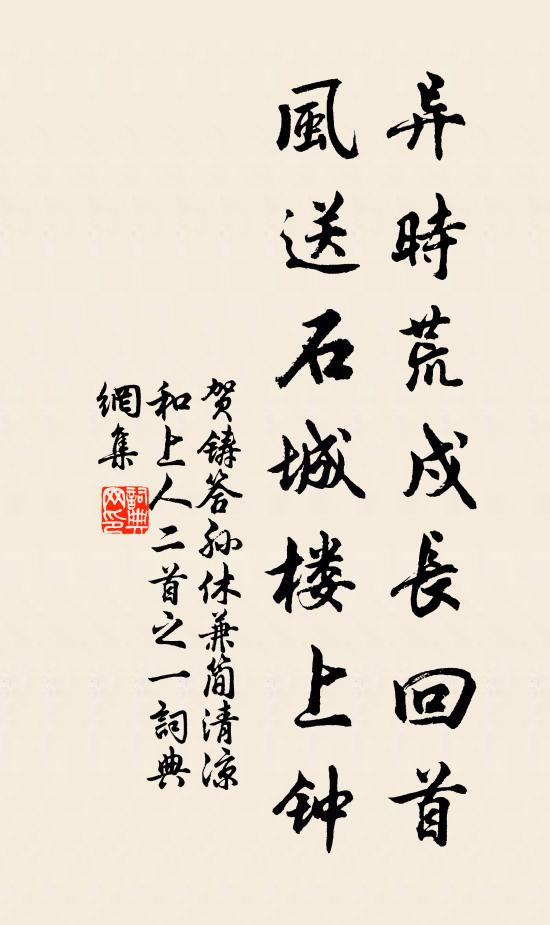 异時荒戍長回首
風送石城楼上钟
贺鑄答孙休兼简清凉
和上人二首之一詞典
網集
詞典
网印